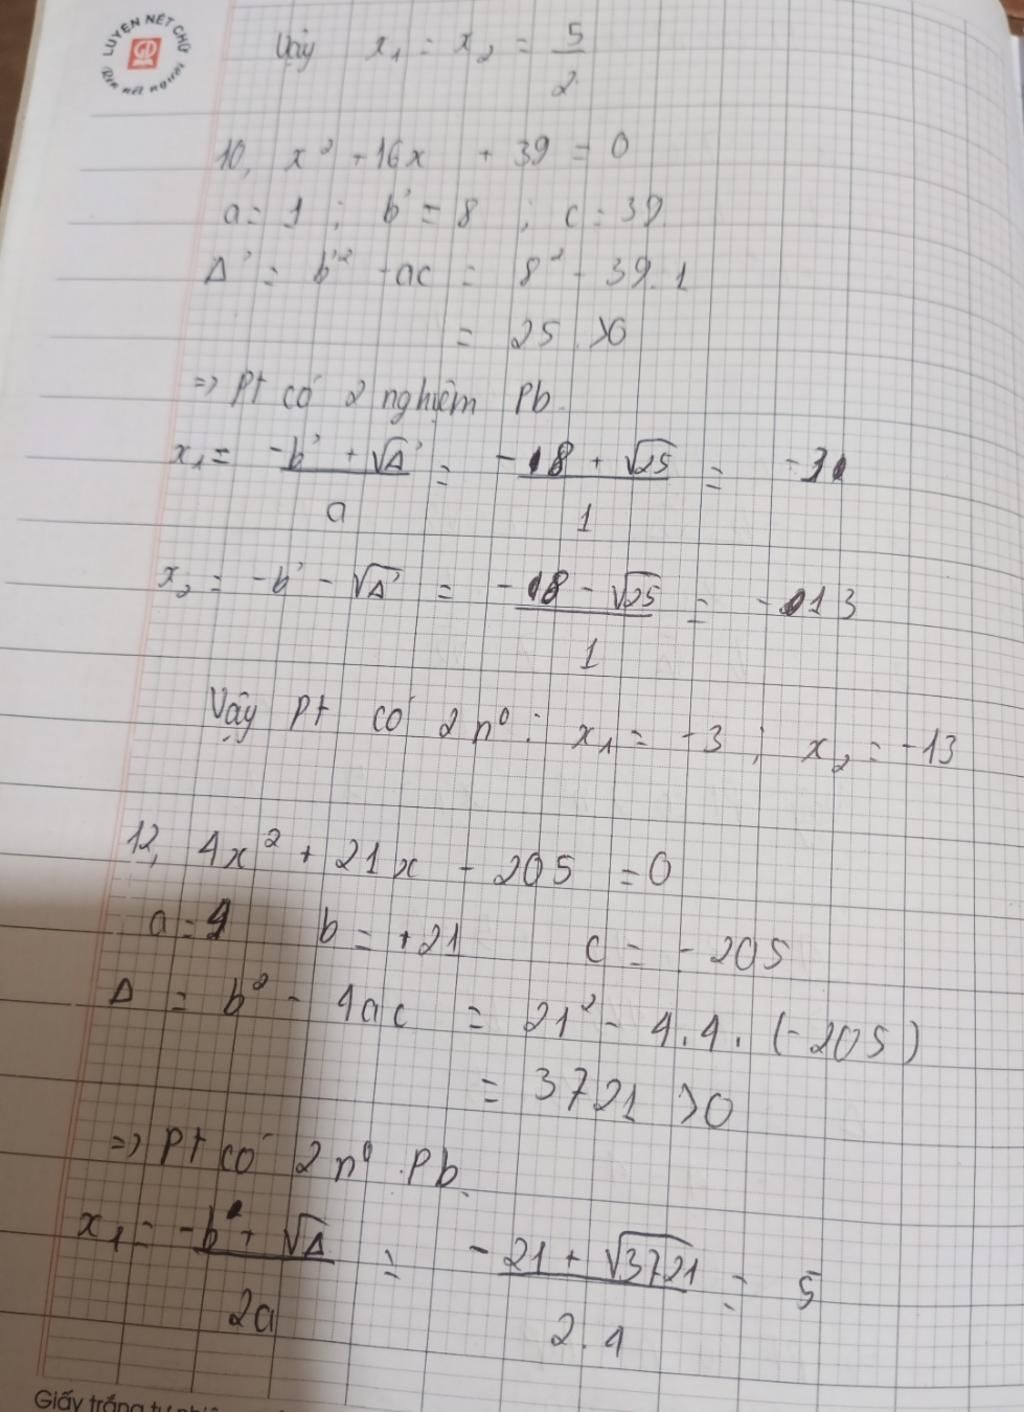 LUYỆN NÉT CHỮ
Rèn nết người
Vậy x₁ = x₂ = 5/2
10, x² + 16x + 39 = 0
a = 1 ; b' = 8 ; c = 39
Δ' = b'² - ac = 8² - 39.1
= 25 > 0
=> Pt có 2 nghiệm Pb.
x₁ = (-b' + √Δ')/a = (-8 + √25)/1 = -3
x₂ = -b' - √Δ' = (-8 - √25)/1 = -13
Vậy Pt có 2 n⁰ : x₁ = -3 ; x₂ = -13
12, 4x² + 21x - 205 = 0
a = 4 b = +21 c = -205
Δ = b² - 4ac = 21² - 4.4.(-205)
= 3721 > 0
=> Pt có 2 n⁰ Pb.
x₁ = (-b + √Δ)/2a = (-21 + √3721)/2.4 = 5
Giấy trắng tự